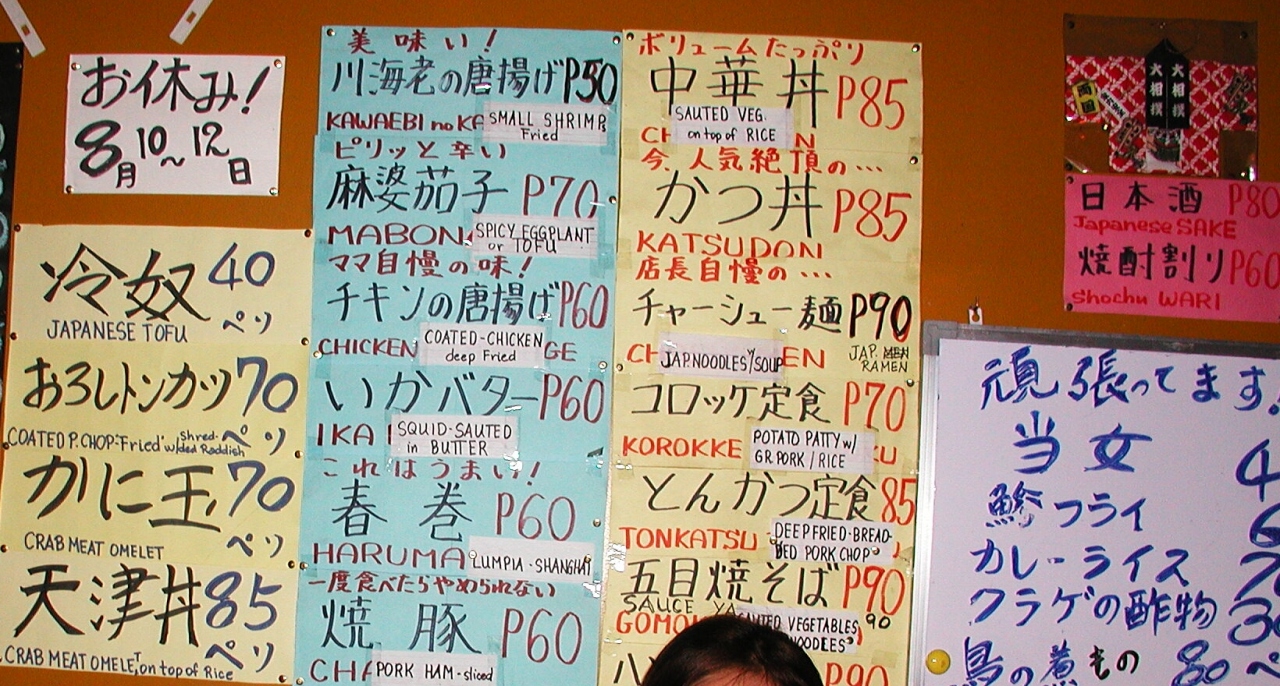 お休み!
8月10~12日
冷奴 40
ペソ
JAPANESE TOFU
おろしトンカツ 70
ペソ
COATED P. CHOP "Fried" w/ shred-ded Raddish
かに玉 70
ペソ
CRAB MEAT OMELET
天津丼 85
ペソ
CRAB MEAT OMELET, on top of Rice
美味い!
川海老の唐揚げ P50
KAWAEBI no KA
SMALL SHRIMP
Fried
ピリッと辛い
麻婆茄子 P70
MABON
SPICY EGGPLANT
or TOFU
ママ自慢の味!
チキンの唐揚げ P60
CHICKEN GE
COATED-CHICKEN
deep Fried
いかバター P60
IKA
SQUID-SAUTED
in BUTTER
これはうまい!
春巻 P60
HARUMA
LUMPIA-SHANGHAI
一度食べたらやめられない
焼豚 P60
CHA
PORK HAM-sliced
ボリュームたっぷり
中華丼 P85
SAUTED VEG.
on top of RICE
CH N
今、人気絶頂の…
かつ丼 P85
KATSUDON
店長自慢の…
チャーシュー麺 P90
CH EN
JAP.NOODLES W/SOUP
JAP. MEN
RAMEN
コロッケ定食 P70
KOROKKE KU
POTATO PATTY w/
GR.PORK / RICE
とんかつ定食 85
TONKATSU
DEEP FRIED-BREAD-
DED PORK CHOP
五目焼そば P90
SAUCE YA 90
GOMO
SAUTED VEGETABLES
NOODLES
P90
大相撲
大相撲
日本酒 P80
Japanese SAKE
焼酎割り P60
Shochu WARI
頑張ってます!
当女 4
鯵フライ 6
カレーライス 7
クラゲの酢物 30
鳥の煮もの 80 ペ